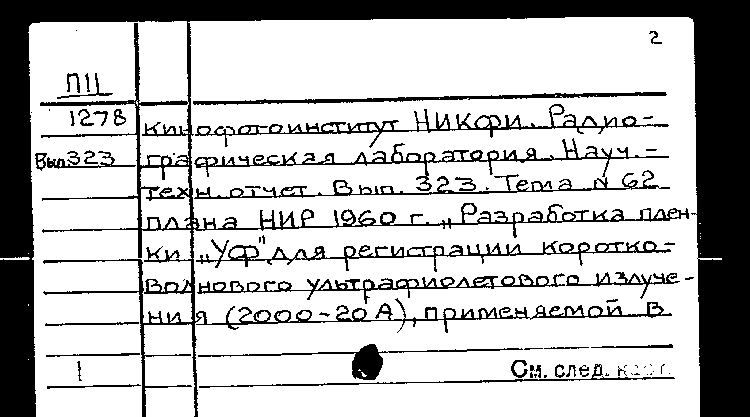 2
ПЦ
1278
Вып 323
кинофотоинститут НИКФИ. Радио-
графическая лаборатория. Науч.-
техн. отчет. Вып. 323. Тема N 62
плана НИР 1960 г. „Разработка плен-
ки „УФ" для регистрации коротко-
волнового ультрафиолетового излуче-
ния (2000-20 А), применяемой в
1
См. след. карт.